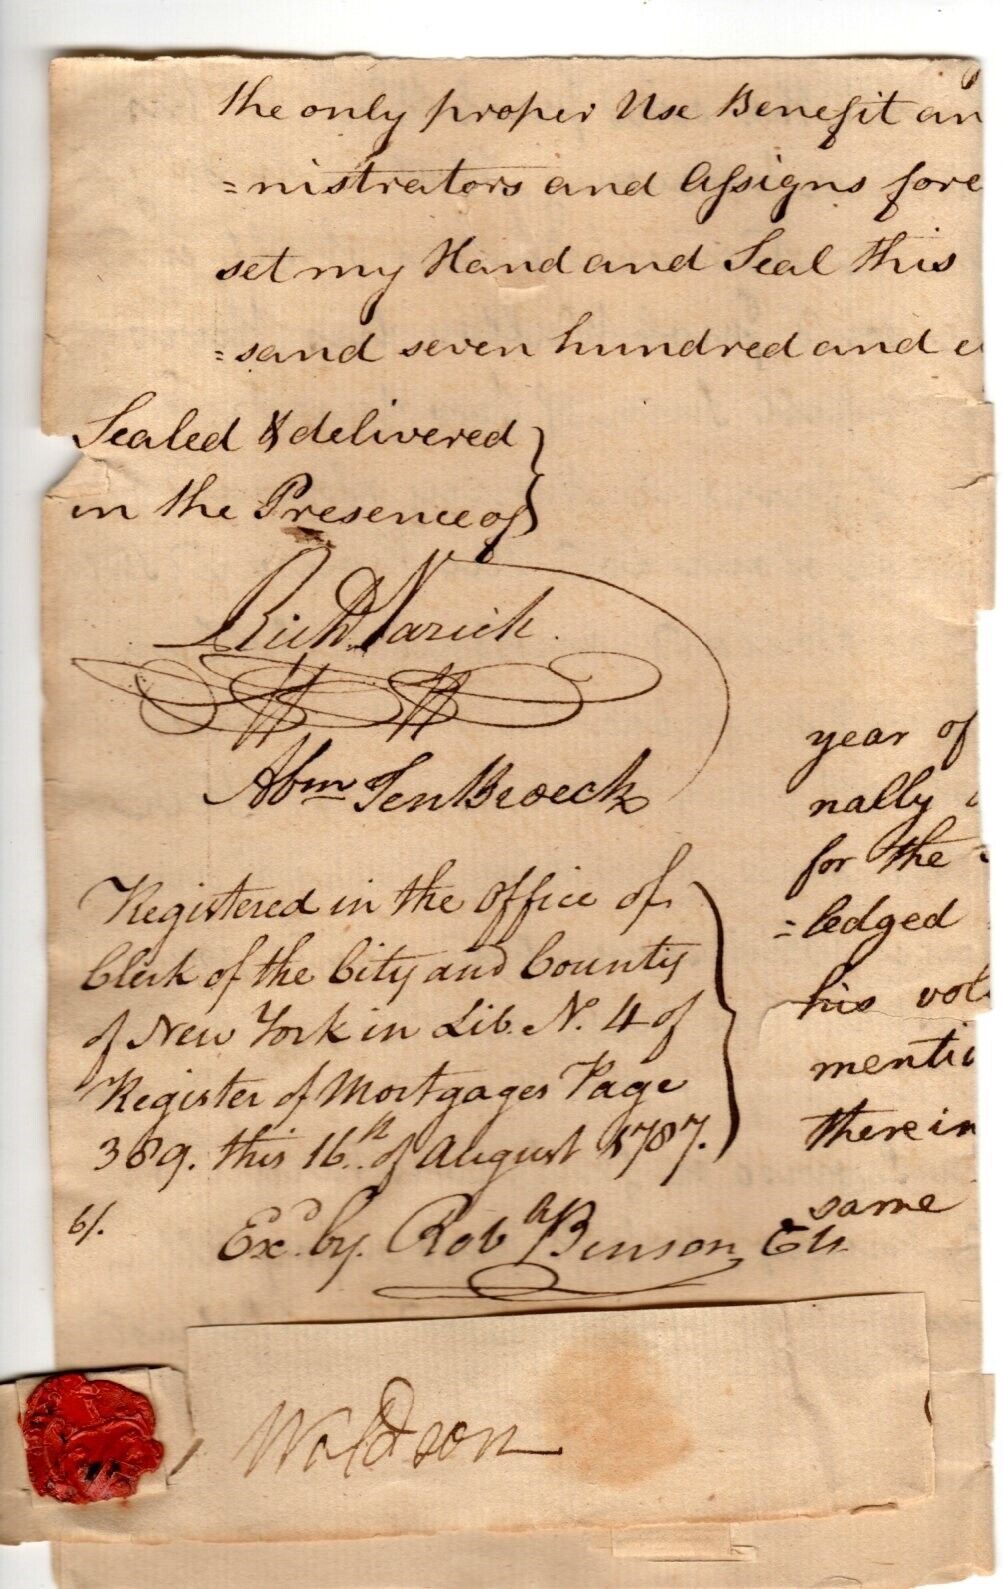 the only proper Use Benefit an
=nistrators and Assigns fore
set my Hand and Seal this
=sand seven hundred and e
Sealed & delivered
in the Presence of
Richd. Varick.
Abm Ten Broeck
year of
nally
for the
=ledged
his vol
mentio
therein
same
Registered in the Office of
Clerk of the City and County
of New York in Lib. No. 4 of
Register of Mortgages Page
389. this 16th. of August 1787.
6/.
Exd. by. Robt Benson, Clk
Waldron